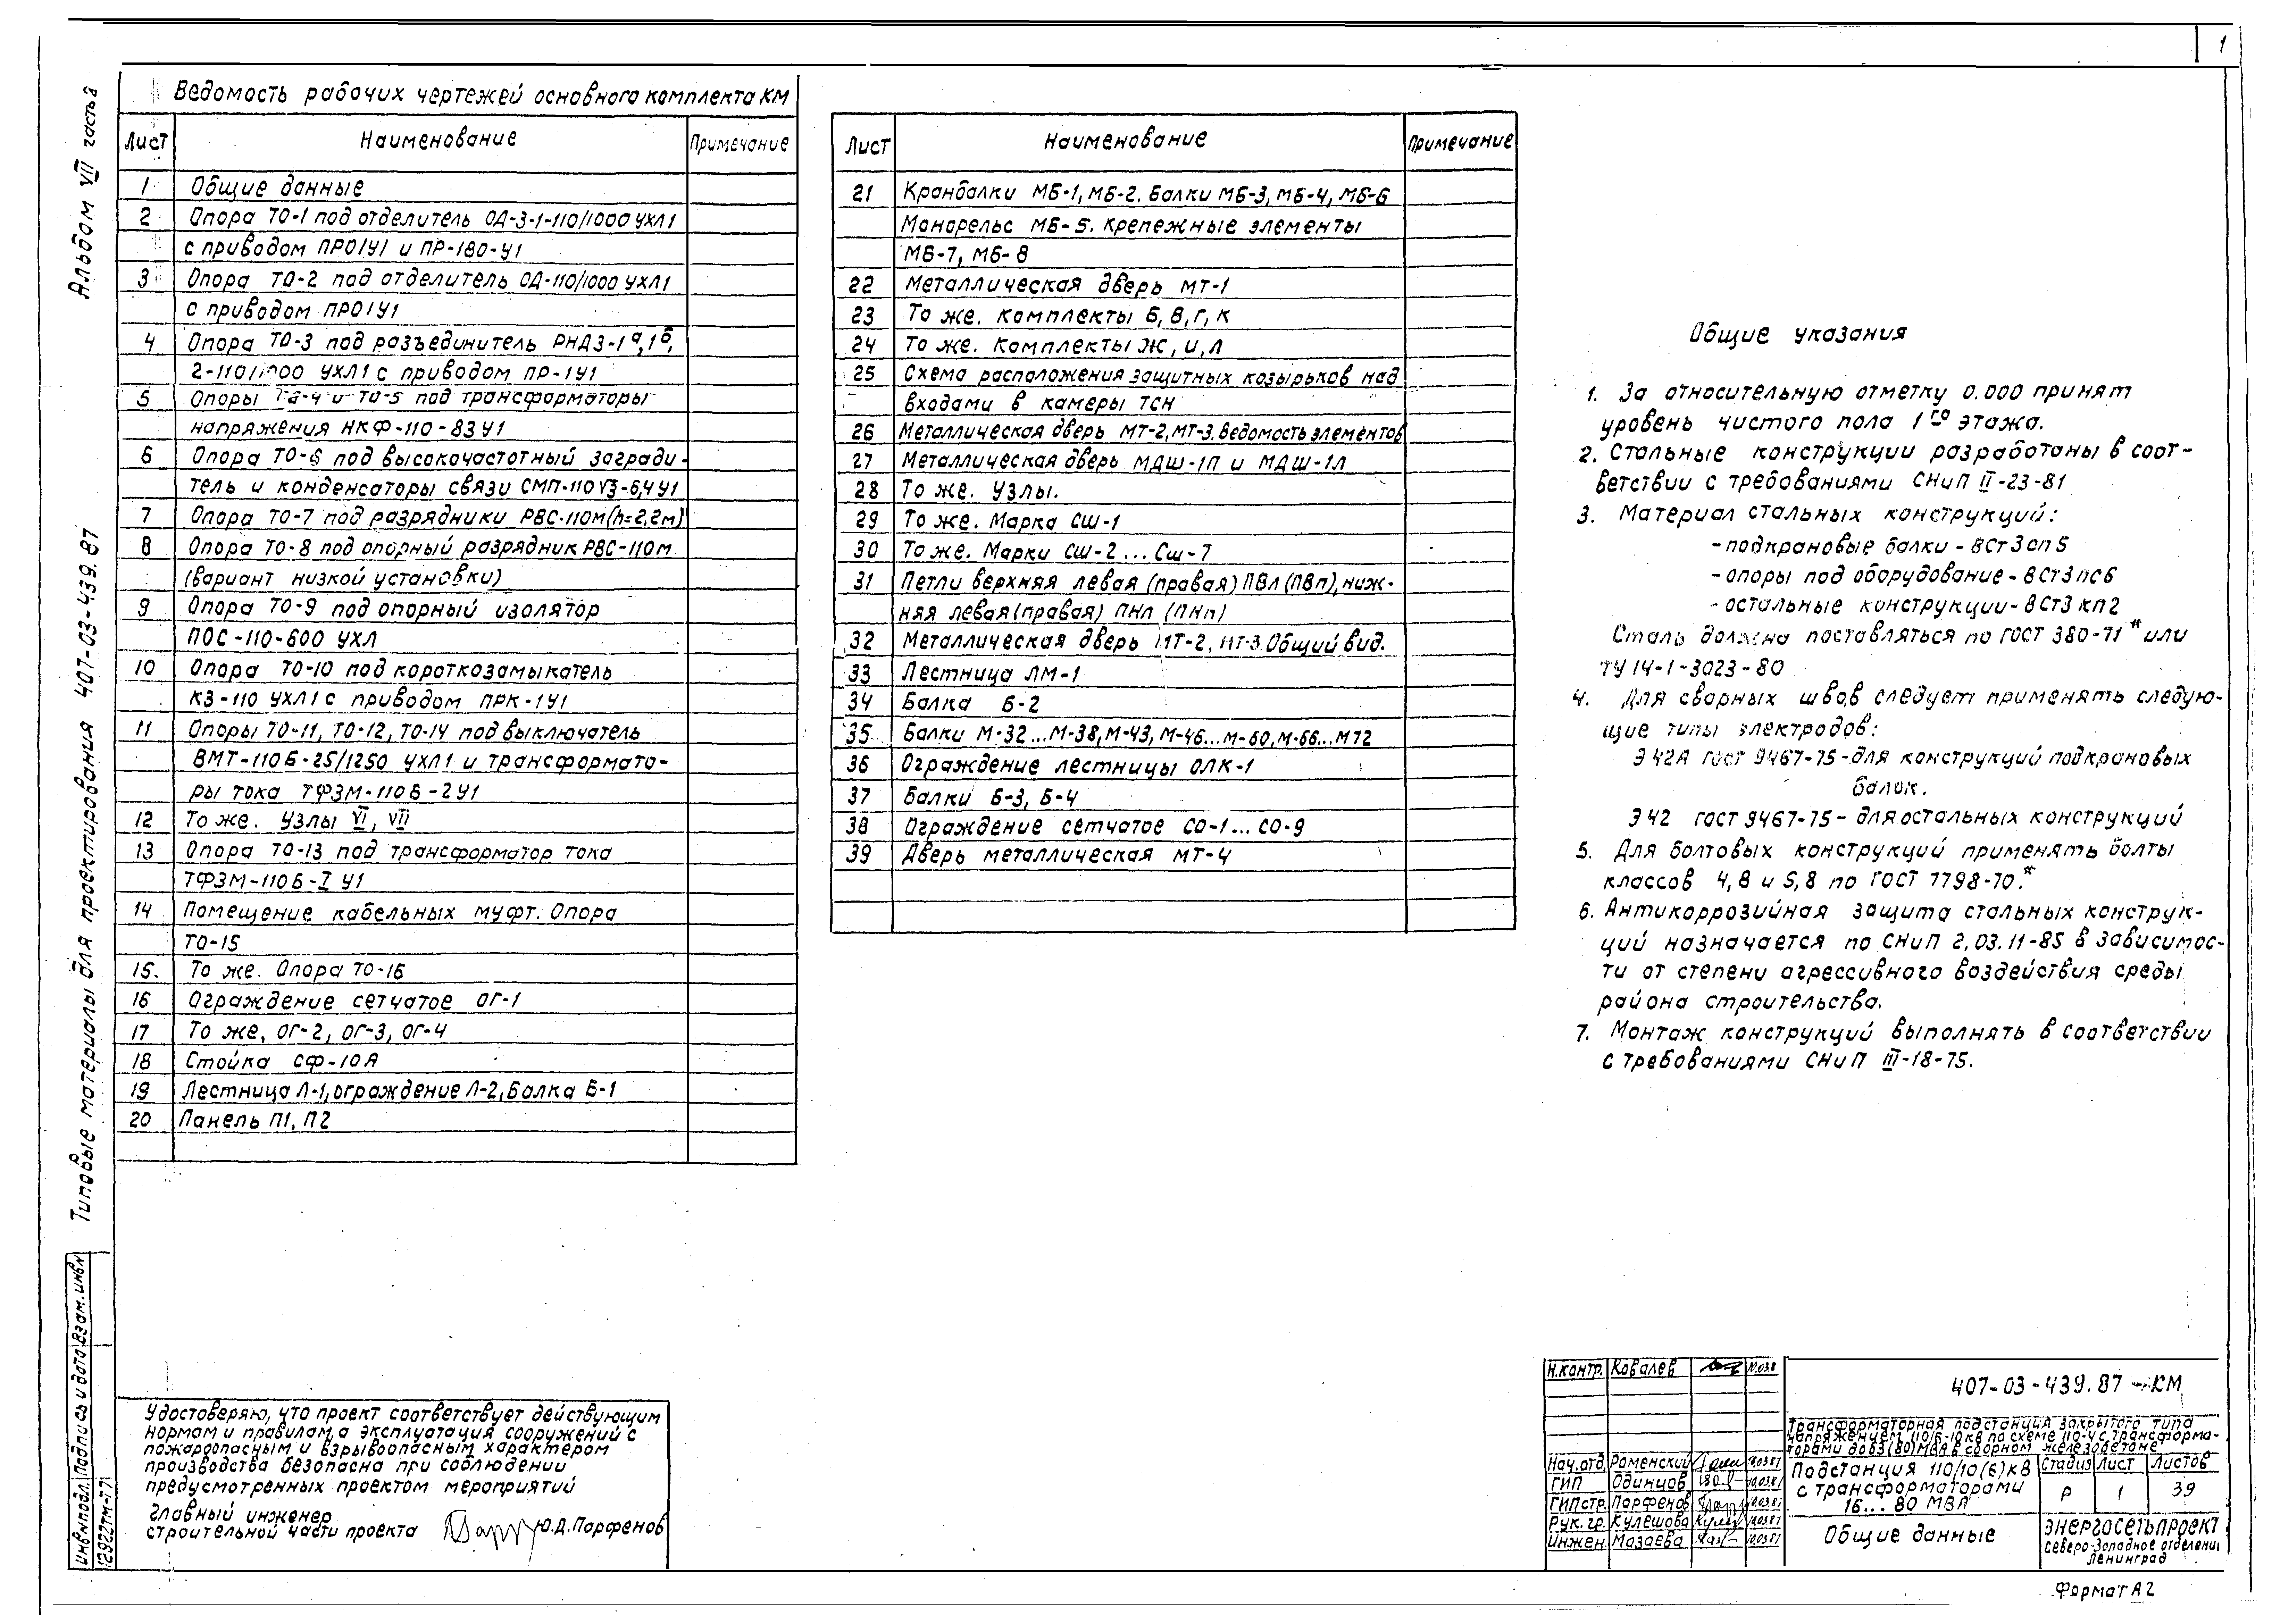 1
Альбом VII часть 2
Типовые материалы для проектирования 407-03-439.87
Ведомость рабочих чертежей основного комплекта КМ
Лист Наименование Примечание
1 Общие данные
2 Опора ТО-1 под отделитель ОД-3-1-110/1000 УХЛ1
с приводом ПРО1У1 и ПР-180-У1
3 Опора ТО-2 под отделитель ОД-110/1000 УХЛ1
с приводом ПРО1У1
4 Опора ТО-3 под разъединитель РНДЗ-1а,1б,
2-110/1000 УХЛ1 с приводом ПР-1У1
5 Опоры ТО-4 и ТО-5 под трансформаторы
напряжения НКФ-110-83У1
6 Опора ТО-6 под высокочастотный загради-
тель и конденсаторы связи СМП-110√3-6,4У1
7 Опора ТО-7 под разрядники РВС-110м(h=2,2м)
8 Опора ТО-8 под опорный разрядник РВС-110м
(вариант низкой установки)
9 Опора ТО-9 под опорный изолятор
ПОС-110-600 УХЛ
10 Опора ТО-10 под короткозамыкатель
КЗ-110 УХЛ1 с приводом ПРК-1У1
11 Опоры ТО-11, ТО-12, ТО-14 под выключатель
ВМТ-110Б-25/1250 УХЛ1 и трансформато-
ры тока ТФЗМ-110Б-2У1
12 То же. Узлы VI, VII
13 Опора ТО-13 под трансформатор тока
ТФЗМ-110Б-I У1
14 Помещение кабельных муфт. Опора
ТО-15
15. То же. Опора ТО-16
16 Ограждение сетчатое ОГ-1
17 То же, ОГ-2, ОГ-3, ОГ-4
18 Стойка СФ-10А
19 Лестница Л-1, ограждение Л-2, Балка Б-1
20 Панель П1, П2
Лист Наименование Примечание
21 Кранбалки МБ-1, МБ-2. Балки МБ-3, МБ-4, МБ-6
Монорельс МБ-5. Крепежные элементы
МБ-7, МБ-8
22 Металлическая дверь МТ-1
23 То же. Комплекты Б, В, Г, К
24 То же. Комплекты Ж, И, Л
25 Схема расположения защитных козырьков над
входами в камеры ТСН
26 Металлическая дверь МТ-2, МТ-3. Ведомость элементов
27 Металлическая дверь МДШ-1П и МДШ-1Л
28 То же. Узлы.
29 То же. Марка СШ-1
30 То же. Марки СШ-2...СШ-7
31 Петли верхняя левая (правая) ПВл (ПВп), ниж-
няя левая (правая) ПНл (ПНп)
32 Металлическая дверь МТ-2, МТ-3. Общий вид.
33 Лестница ЛМ-1
34 Балка Б-2
35 Балки М-32...М-38, М-43, М-46...М-60, М-66...М72
36 Ограждение лестницы ОЛК-1
37 Балки Б-3, Б-4
38 Ограждение сетчатое СО-1...СО-9
39 Дверь металлическая МТ-4
Общие указания
1. За относительную отметку 0.000 принят
уровень чистого пола 1го этажа.
2. Стальные конструкции разработаны в соот-
ветствии с требованиями СНиП II-23-81
3. Материал стальных конструкций:
- подкрановые балки - ВСт3сп5
- опоры под оборудование - ВСт3пс6
- остальные конструкции - ВСт3кп2
Сталь должна поставляться по ГОСТ 380-71* или
ТУ 14-1-3023-80
4. Для сварных швов следует применять следую-
щие типы электродов:
Э42А ГОСТ 9467-75 - для конструкций подкрановых
балок.
Э42 ГОСТ 9467-75 - для остальных конструкций
5. Для болтовых конструкций применять болты
классов 4,8 и 5,8 по ГОСТ 7798-70.*
6. Антикоррозийная защита стальных конструк-
ций назначается по СНиП 2.03.11-85 в зависимос-
ти от степени агрессивного воздействия среды
района строительства.
7. Монтаж конструкций выполнять в соответствии
с требованиями СНиП III-18-75.
Удостоверяю, что проект соответствует действующим
нормам и правилам, а эксплуатация сооружений с
пожароопасным и взрывоопасным характером
производства безопасна при соблюдении
предусмотренных проектом мероприятий
Главный инженер
строительной части проекта Ю.Д.Парфенов
Инв.№подл. Подпись и дата Взам.инв.№
12922тм-Т7
Н.контр. Ковалев
Нач.отд. Роменский
ГИП Одинцов
ГИПстр. Парфенов
Рук.гр. Кулешова
Инжен. Мазаева
407-03-439.87-КМ
Трансформаторная подстанция закрытого типа
напряжением 110/6-10кв по схеме 110-4 с трансформа-
торами до 63(80)МВА в сборном железобетоне
Подстанция 110/10(6)кв
с трансформаторами
16...80 МВА
Стадия Лист Листов
Р 1 39
Общие данные
ЭНЕРГОСЕТЬПРОЕКТ
Северо-Западное отделение
Ленинград
Формат А2